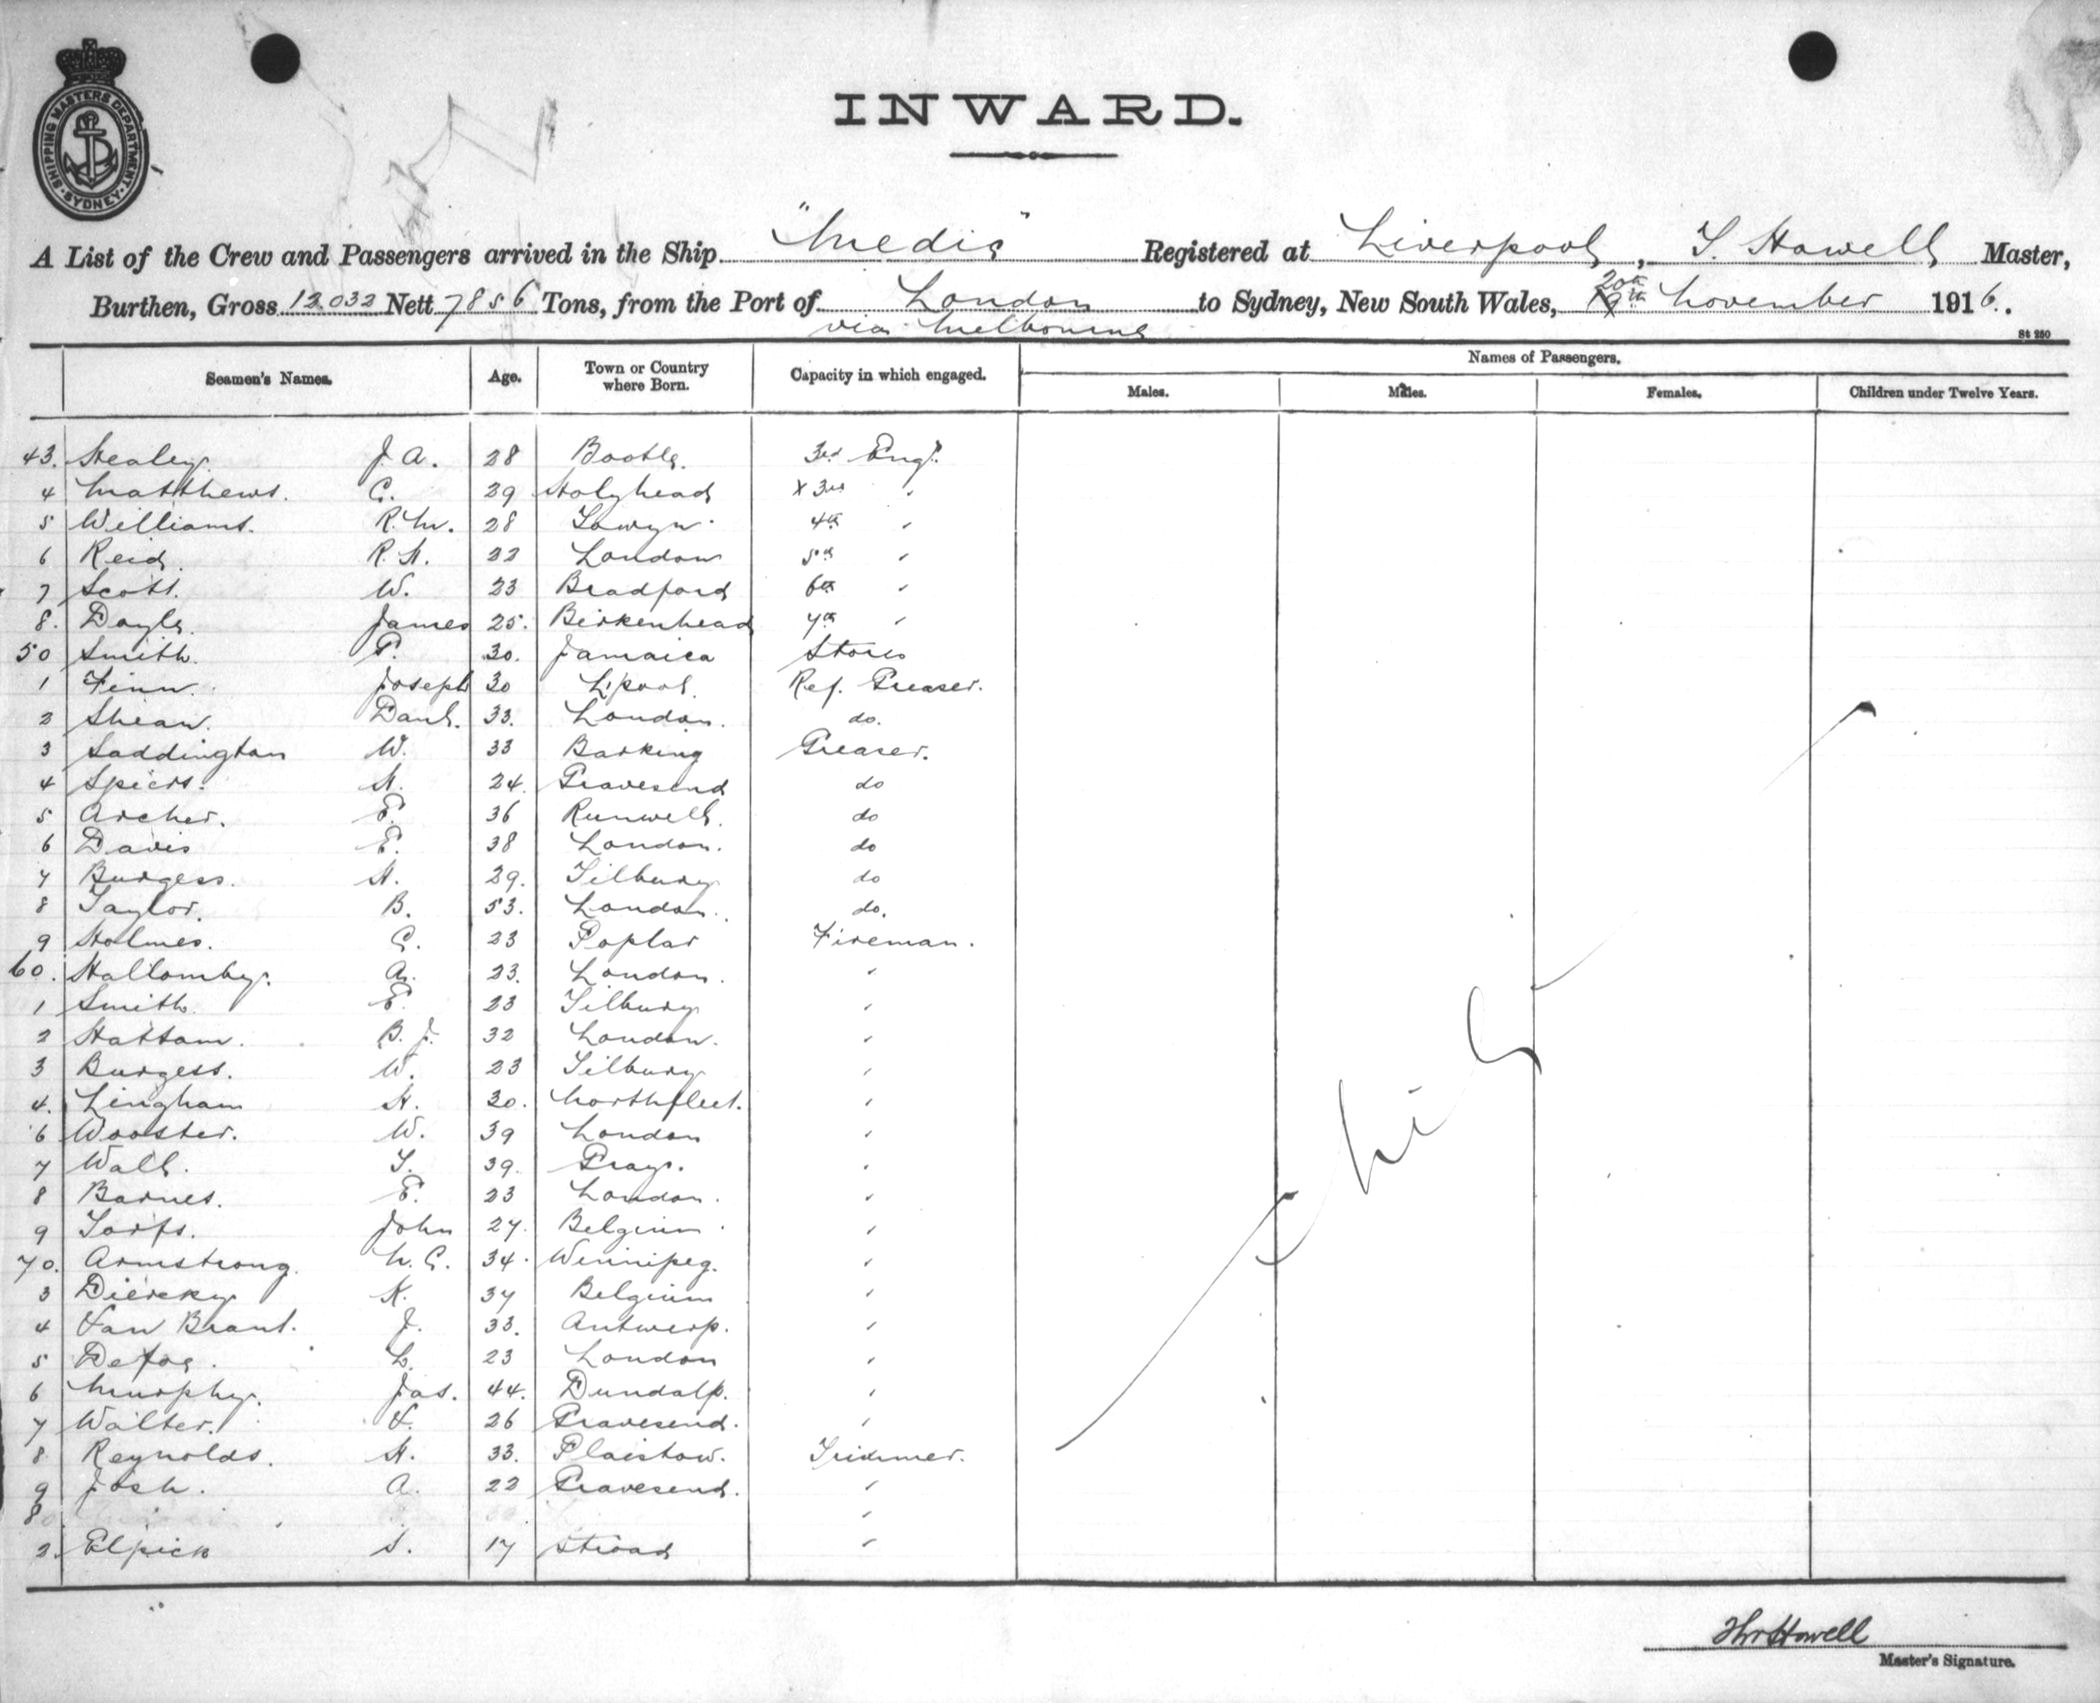 SHIPPING MASTERS DEPARTMENT SYDNEY
INWARD.
A List of the Crew and Passengers arrived in the Ship "Medic" Registered at Liverpool, T. Howell Master,
Burthen, Gross 12032 Nett 7856 Tons, from the Port of London to Sydney, New South Wales, 20th November 1916.
via Melbourne
St 250
Seamen's Names. Age. Town or Country where Born. Capacity in which engaged. Names of Passengers.
Males. Males. Females. Children under Twelve Years.
43. Healey. J. A. 28 Bootle. 3rd Engr.
4 Matthews. C. 29 Holyhead x 3rd "
5 Williams. R. M. 28 Towyn 4th "
6 Reid. R. H. 22 London 5th "
7 Scott. W. 23 Bradford 6th "
8. Doyle. James 25. Birkenhead 7th "
50 Smith. P. 30. Jamaica Stores
1 Finn. Joseph 30 L'pool. Ref. Greaser.
2 Shean. Danl. 33. London. do.
3 Saddington W. 33 Barking Greaser.
4 Spiers. H. 24. Gravesend do
5 Archer. E. 36 Runwell. do
6 Davis E. 38 London. do
7 Burgess. H. 29. Tilbury do
8 Taylor. B. 53. London. do.
9 Holmes. C. 23 Poplar Fireman.
60. Hallomby. A. 23. London. "
1 Smith E. 23 Tilbury "
2 Hattam. B. J. 32 London. "
3 Burgess. W. 23 Tilbury "
4. Lingham H. 30. Northfleet. "
6 Wooster. W. 39 London "
7 Wall. T. 39. Grays. "
8 Barnes. E. 23 London. "
9 Torfs. John 27. Belgium "
70. Armstrong. N. C. 34. Winnipeg. "
3 Dierckx K. 37 Belgium "
4 Van Brant. J. 33. Antwerp. "
5 Defoe. L. 23 London "
6 Murphy. Jas. 44. Dundalk. "
7 Walter. V. 26 Gravesend. "
8 Reynolds. H. 33. Plaistow. Trimmer.
9 Josh. A. 22 Gravesend. "
80 "
2. Elpick S. 17 Strood "
Nil
Thos Howell
Master's Signature.